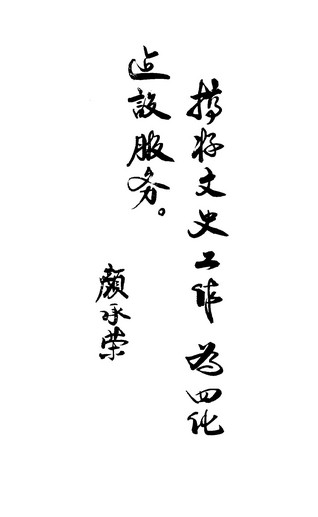 搞好文史工作 为四化
迠設服务。
顏承荣